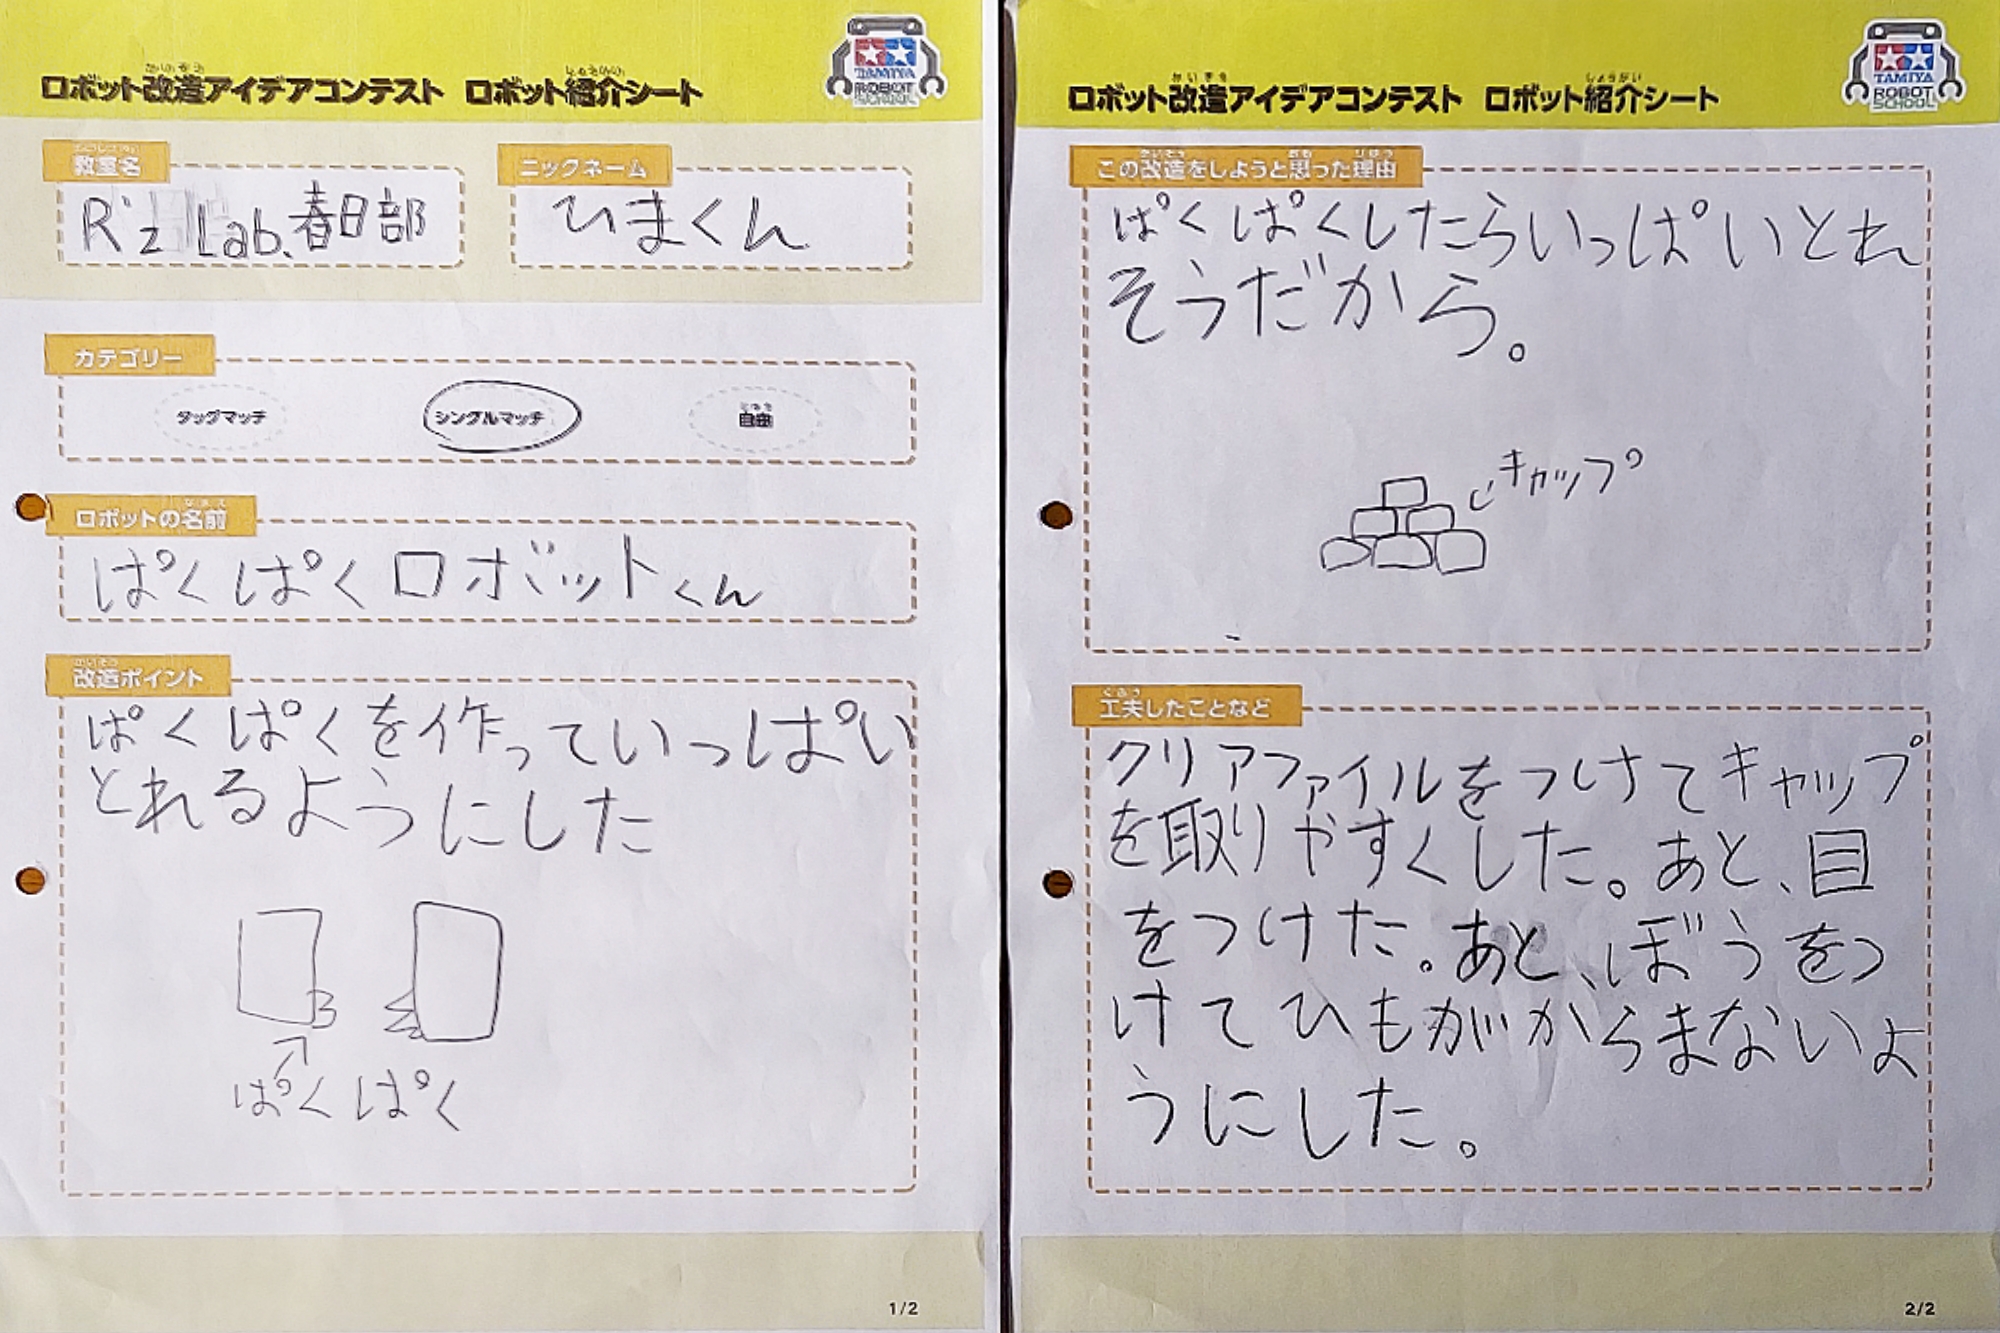 ロボット改造アイデアコンテスト ロボット紹介シート
TAMIYA
ROBOT
SCHOOL
教室名
R'z Lab.春日部
ニックネーム
ひまくん
カテゴリー
タッグマッチ シングルマッチ 自由
ロボットの名前
ぱくぱくロボットくん
改造ポイント
ぱくぱくを作っていっぱい
とれるようにした
ぱくぱく
1/2
ロボット改造アイデアコンテスト ロボット紹介シート
TAMIYA
ROBOT
SCHOOL
この改造をしようと思った理由
ぱくぱくしたらいっぱいとれ
そうだから。
キャップ
工夫したことなど
クリアファイルをつけてキャップ
を取りやすくした。あと、目
をつけた。あと、ぼうをつ
けてひもがからまないよ
うにした。
2/2